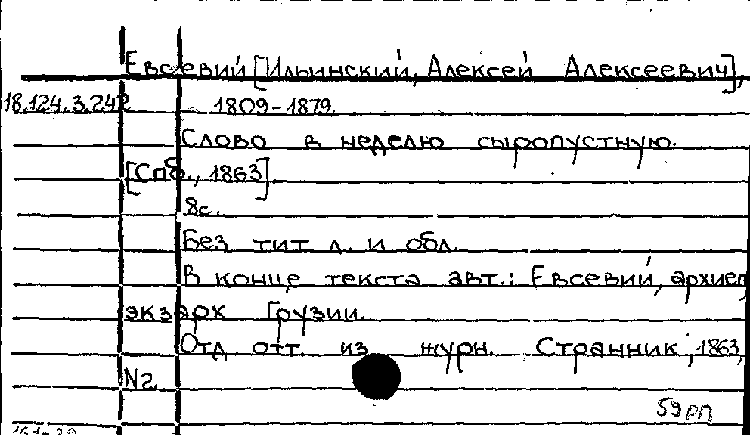 Евсевий [Ильинский, Алексей Алексеевич],
18.124.3.242 1809-1879.
Слово в неделю сыропустную.
[Спб., 1863]
8с.
Без тит л. и обл.
В конце текста авт.: Евсевий, архиеп
экзарх Грузии.
Отд отт. из журн. Странник, 1863,
N2
59рп